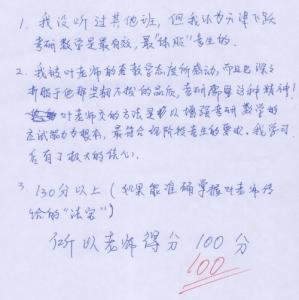 1. 我没听过其他班，但我认为天津飞跃
考研数学是最有效，最"体贴"考生的.
2. 我被叶老师的老教学态度所感动，而且也深
折服于他那坚韧不拔的品质，考研需要这种精神！
叶老师交的方法是以增强考研数学的
应试能力为根本，最符合现阶段考生的要求，我学习
后有了极大的信心.
3. 130分以上（如果能准确掌握叶老师传
给的"法宝"）
所以老师得分 100 分
100